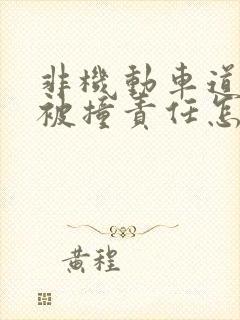 非機動車道
被撞責任怎
黃程